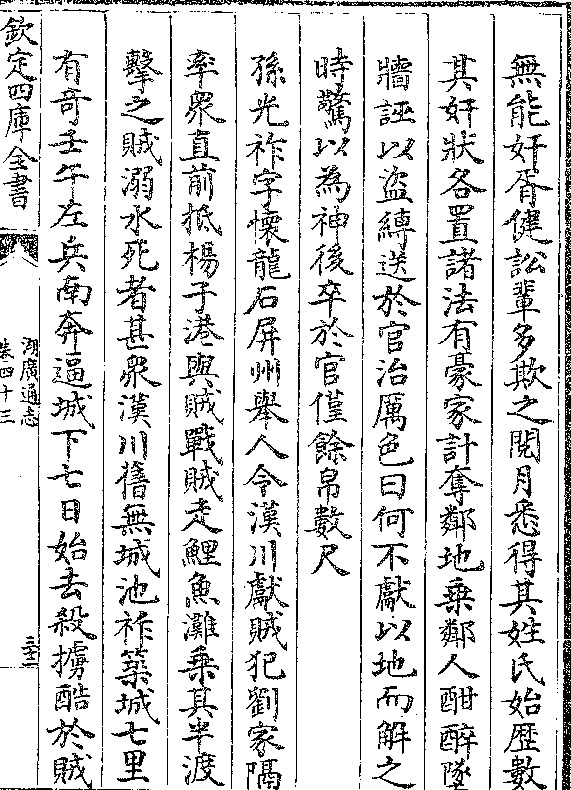 無能奸胥健訟輩多欺之閱月悉得其姓氏始歴數
其奸狀各置諸法有豪家計奪鄰地乗鄰人酣醉墜
牆誣以盜縛送於官治厲色曰何不獻以地而解之
時驚以為神後卒於官僅餘帛數尺
孫光祚字懷龍石屏州舉人令漢川獻賊犯劉家隔
率衆直前抵楊子港與賊戰賊走鯉魚灘乗其半渡
擊之賊溺水死者甚衆漢川舊無城池祚築城七里
有奇壬午左兵南奔逼城下七日始去殺擄酷於賊
欽定四庫全書
湖廣通志
卷四十三